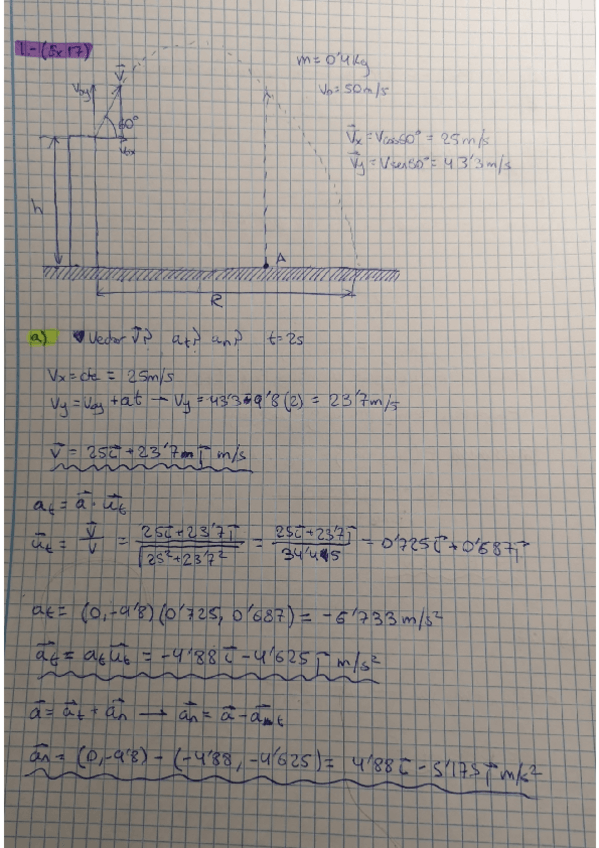 1-(5x17)
V⃗
m=0'4kg
Voy
V₀=50m/s
60°
Vox
V⃗x=Vcos60°=25m/s
V⃗y=Vsen60°=43'3m/s
h
A
R
a) Vector V⃗? at? an? t=2s
Vx=cte=25m/s
Vy=Voy+at → Vy=43'3-9'8(2)=23'7m/s
V⃗=25i⃗+23'7j⃗ m/s
at=a⃗·u⃗t
u⃗t=V⃗/V=(25i⃗+23'7j⃗)/√(25²+23'7²)=(25i⃗+23'7j⃗)/34'445=0'725i⃗+0'687j⃗
at=(0,-9'8)(0'725, 0'687)=-6'733m/s²
a⃗t=at u⃗t=-4'88i⃗-4'625j⃗ m/s²
a⃗=a⃗t+a⃗n → a⃗n=a⃗-a⃗t
a⃗n=(0,-9'8)-(-4'88,-4'625)=4'88i⃗-5'175j⃗ m/s²